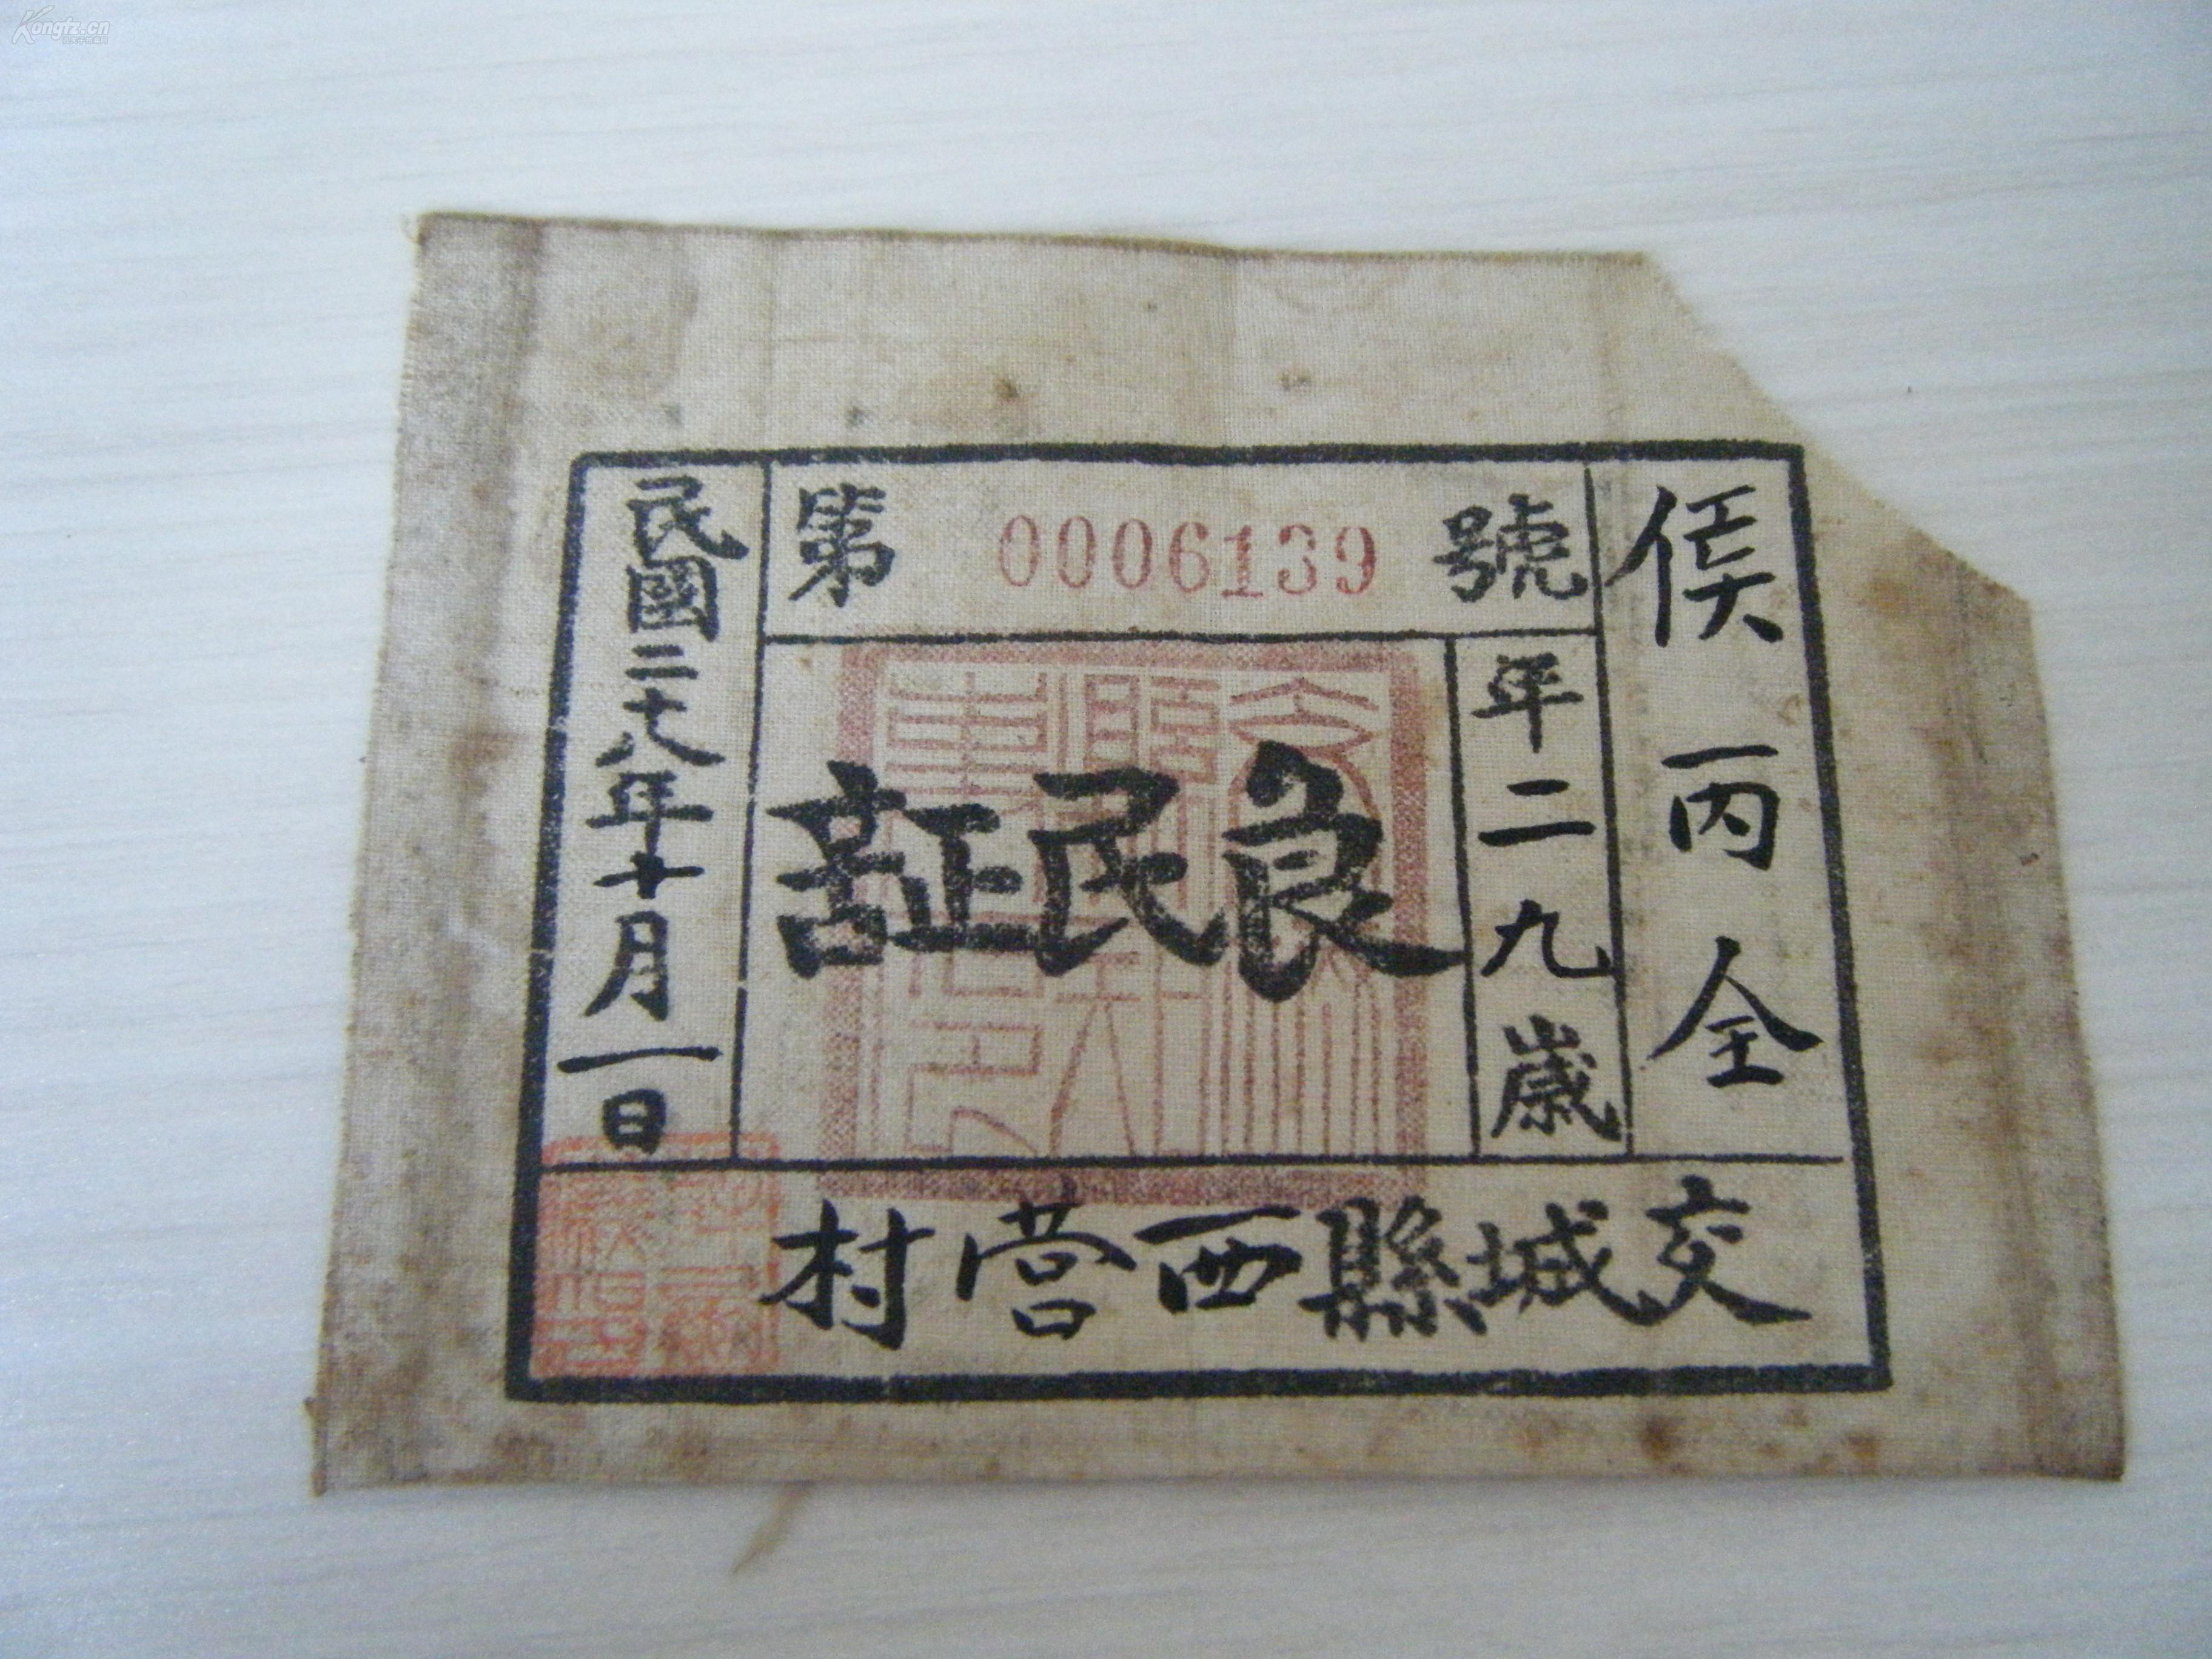 Kongfz.cn
侯丙全
第 0006139 號
年二九歲
良民証
民國二十八年十月一日
交城縣西营村